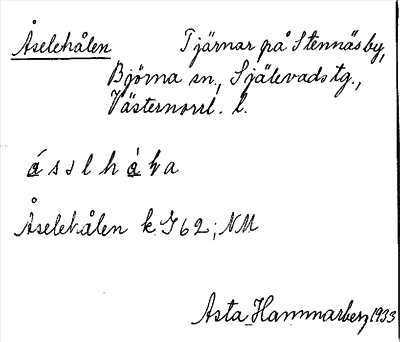 Åselehålen Tjärnar på Stennäs by,
Björna sn., Själevads tg.,
Västernorrl. l.
Åselehålen k. J62; NM
Asta Hammarberg 1933